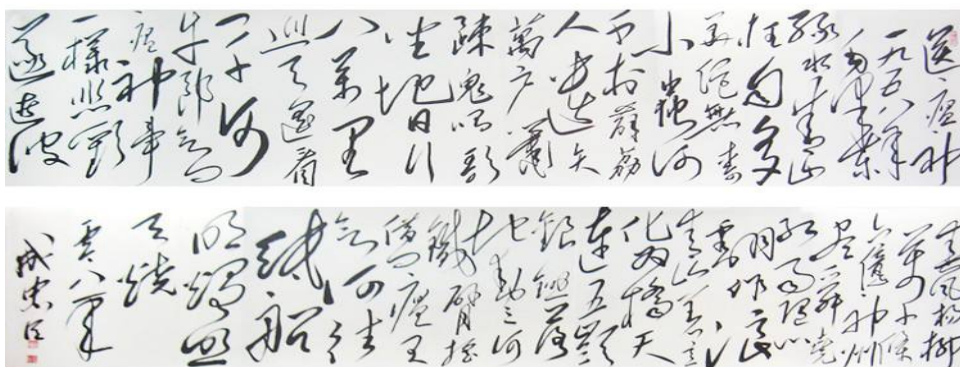 送瘟神
一九五八年
绿水青山
枉自多
華佗無奈
小蟲何
千村薜荔
人遗矢
萬户蕭
疎鬼唱歌
坐地日行
八萬里
巡天遥看
一千河
牛郎欲問
瘟神事
一樣悲歡
逐逝波
春風楊柳
萬千條
六億神州
盡舜堯
紅雨随心
翻作浪
青山着意
化為橋天
連五嶺
銀鋤落
地動三河
鐵臂摇
借問瘟君
欲何往
紙船
明燭照
天燒
零八年